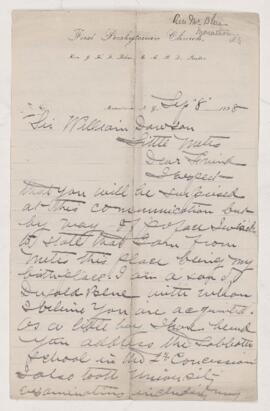 Rev Mc Blue
First Presbyterian Church,
Sep 8 1888
Sir William Dawson
Little Metis
Dear Friend
I expect
that you will be surprised
at this communication but
by way of I wish
to state that I am from
Metis this place being my
birthplace. I am a son of
with whom
I believe you are acquainted.
As a little boy I have heard
you address the Sabbath
School in the 2nd Concession
I also took University
examinations including